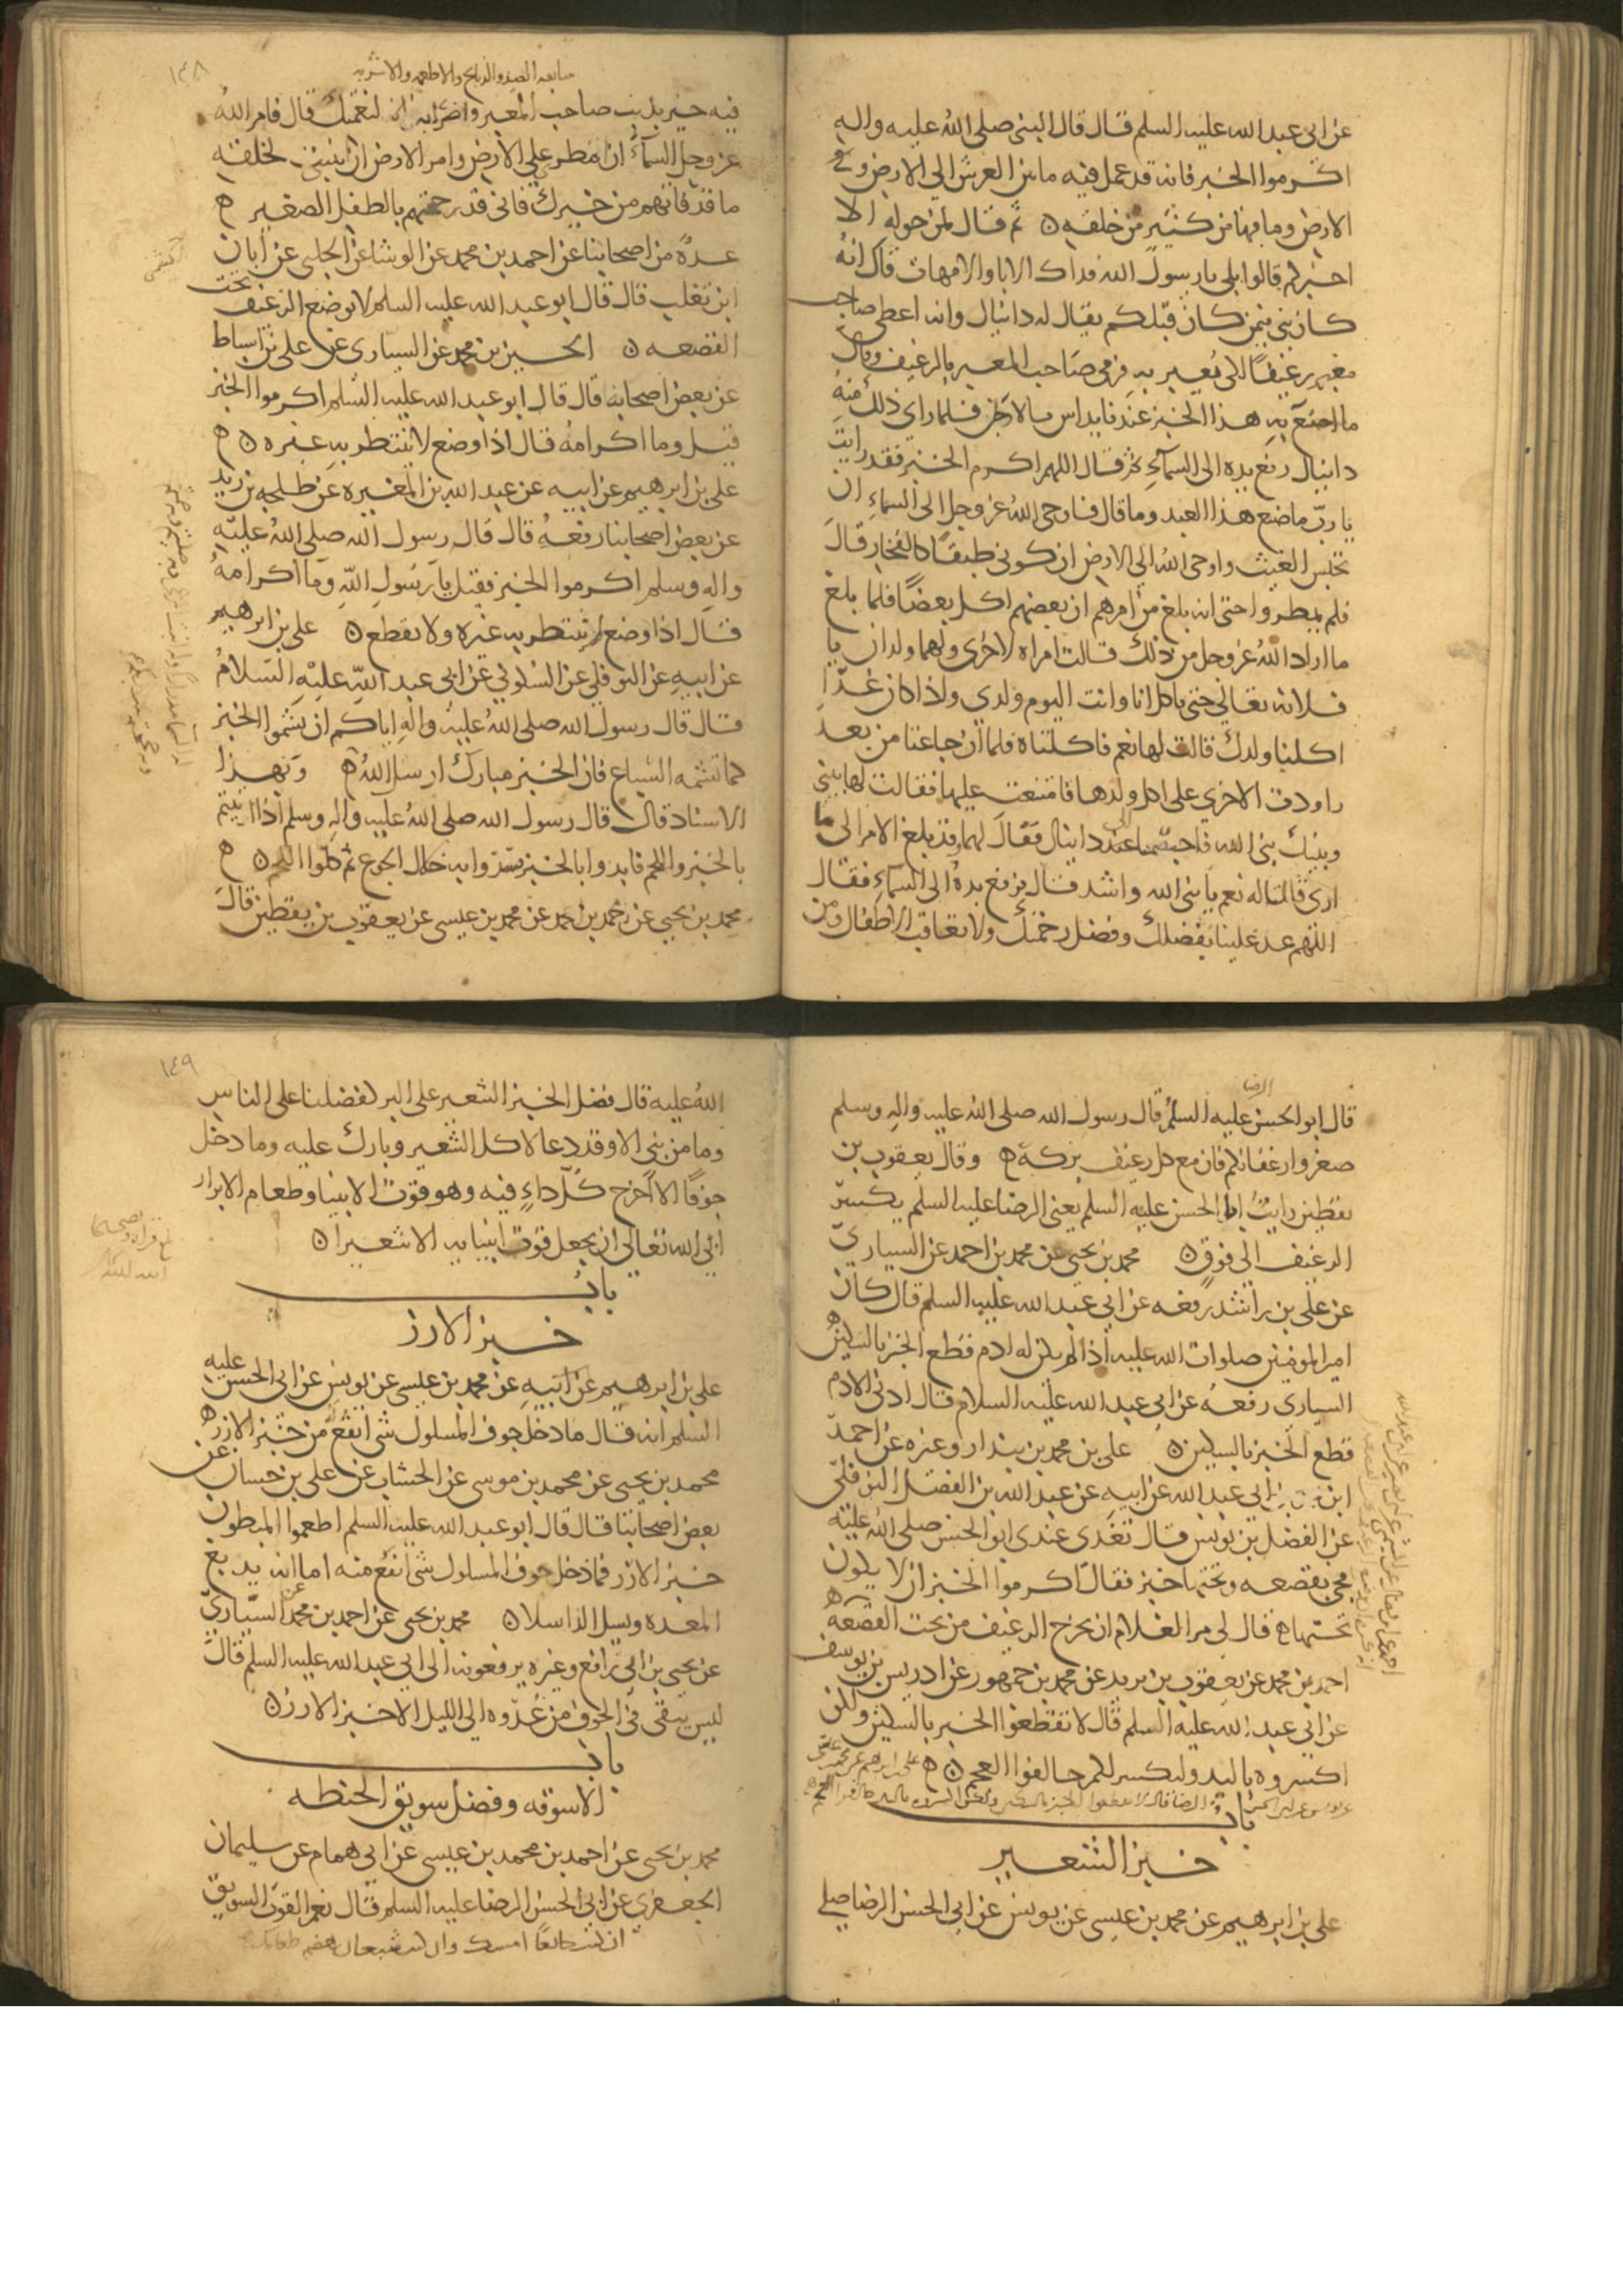 عن ابى عبد الله عليه السلم قال قال النبى صلى الله عليه واله
اكرموا الخبز فانه قد عمل فيه ما بين العرش الى الارض و
الارض وما فيها من كثير من خلقه ن ثم قال لمن حوله الا
اخبركم قالوا بلى يا رسول الله فداك الابا والامهات قال انه
كان نبى فيمن كان قبلكم يقال له دانيال وانه اعطى صاحب
معبر رغيفا لكى يعبر به فرمى صاحب المعبر بالرغيف وقال
ما اصنع به هذا الخبز عندنا يداس بالارجل فلما راى ذلك منه
دانيال رفع يده الى السماء ثم قال اللهم اكرم الخبز فقد رايت
يا رب ما صنع هذا العبد وما قال فاوحى الله عز وجل الى السماء ان
تحبس الغيث واوحى الله الى الارض ان كونى طبقا كالفخار قال
فلم يمطروا حتى انه بلغ من امرهم ان بعضهم اكل بعضا فلما بلغ
ما اراد الله عز وجل من ذلك قالت امراه لاخرى ولهما ولدان يا
فلانه تعالى حتى ناكل انا وانت اليوم ولدى واذا كان غدا
اكلنا ولدك قالت لها نعم فاكلتاه فلما ان جاعتا من بعد
راودت الاخرى على اكل ولدها فامتنعت عليها فقالت لها بينى
وبينك نبى الله فاختصمتا الى دانيال فقال لهما وقد بلغ الامر الى ما
ارى قالتا له نعم يا نبى الله واشد قال فرفع يده الى السماء فقال
اللهم عد علينا بفضلك وفضل رحمتك ولا تعاقب الاطفال ومن
١٤٨
فيه خير بذنب صاحب المعبر واضرابه لنعمتك قال فامر الله
عز وجل السماء ان امطرى على الارض وامر الارض ان انبتى لخلقى
ما قد فاتهم من خيرك فانى قد رحمتهم بالطفل الصغير ه
عده من اصحابنا عن احمد بن محمد عن الوشا عن عن ابان
ابن تغلب قال قال ابو عبد الله عليه السلم لا يوضع الرغيف تحت
القصعه ن الحسين بن محمد عن السيارى عن على بن اسباط
عن بعض اصحابه قال قال ابو عبد الله عليه السلم اكرموا الخبز
قيل وما اكرامه قال اذا وضع لا ينتظر به غيره ن ه
على بن ابرهيم عن ابيه عن عبد الله بن المغيره عن طلحه بن زيد
عن بعض اصحابنا رفعه قال قال رسول الله صلى الله عليه
واله وسلم اكرموا الخبز فقيل يا رسول الله وما اكرامه
قال اذا وضع لم ينتظر به غيره ولا يقطع ن على بن ابرهيم
عن ابيه عن النوفلى عن السكونى عن ابى عبد الله عليه السلام
قال قال رسول الله صلى الله عليه واله اياكم ان تشموا الخبز
كما تشمه السباع فان الخبز مبارك ارسل الله ه وبهذا
الاسناد قال قال رسول الله صلى الله عليه واله وسلم اذا اتيتم
بالخبز واللحم فابدوا بالخبز فسدوا به خلال الجوع ثم كلوا اللحم ن ه
محمد بن يحيى عن احمد بن محمد عن محمد بن عيسى عن يعقوب بن يقطين قال
الرضا
قال ابو الحسن عليه السلم قال رسول الله صلى الله عليه واله وسلم
صغروا رغفانكم فان مع كل رغيف بركه ه وقال يعقوب بن
يقطين رايت ابا الحسن عليه السلم يعنى الرضا عليه السلم يكسر
الرغيف الى فوق ن محمد بن يحيى عن محمد بن احمد عن السيارى
عن على بن راشد رفعه عن ابى عبد الله عليه السلم قال كان
امير المومنين صلوات الله عليه اذا لم يكن له ادم قطع الخبز بالسكين ه
السيارى رفعه عن ابى عبد الله عليه السلام قال ادنى الادم
قطع الخبز بالسكين ن على بن محمد بن بندار وغيره عن احمد
ابن ابى عبد الله عن ابيه عن عبد الله بن الفضل النوفلى
عن الفضل بن يونس قال تغدى عندى ابو الحسن صلى الله عليه
فجى بقصعه وتحتها خبز فقال اكرموا الخبز ان لا يكون
تحتها ه قال لى مر الغلام ان يخرج الرغيف من تحت القصعه ه
احمد بن محمد عن يعقوب بن يزيد عن محمد بن جمهور عن ادريس بن يوسف
عن ابى عبد الله عليه السلم قال لا تقطعوا الخبز بالسكين ولكن
اكسروه باليد وليكسر لكم خالفوا العجم ن ه
باب
خبز الشعير
على بن ابرهيم عن محمد بن عيسى عن يونس عن ابى الحسن الرضا صلى
١٤٩
الله عليه قال فضل الخبز الشعير على البر كفضلنا على الناس
وما من نبى الا وقد دعا لاكل الشعير وبارك عليه وما دخل
جوفا الا اخرج كل داء فيه وهو قوت الانبيا وطعام الابرار
ابى الله تعالى ان يجعل قوت انبيايه الا شعيرا ن
باب
خبز الارز
على بن ابرهيم عن ابيه عن محمد بن عيسى عن يونس عن ابى الحسن عليه
السلم انه قال ما دخل جوف المسلول شى انفع من خبز الارز ه
محمد بن يحيى عن محمد بن موسى عن الخشاب عن على بن حسان عن
بعض اصحابنا قال قال ابو عبد الله عليه السلم اطعموا المبطون
خبز الارز فما دخل جوف المسلول شى انفع منه اما انه يدبغ
المعده ويسل الدا سلا ن محمد بن يحيى عن احمد بن محمد عن السيارى
عن يحيى بن ابى رافع وغيره يرفعونه الى ابى عبد الله عليه السلم قال
ليس يبقى فى الجوف من غدوه الى الليل الا خبز الارز ن
باب
الاسوقه وفضل سويق الحنطه
محمد بن يحيى عن احمد بن محمد بن عيسى عن ابى همام عن سليمان
الجعفرى عن ابى الحسن الرضا عليه السلم قال نعم القوت السويق
ان كنت جائعا امسك وان كنت شبعان هضم طعامك